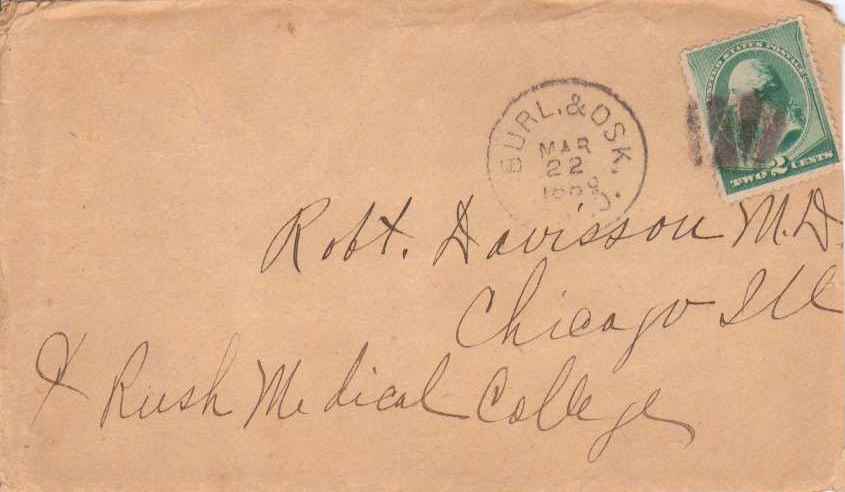 UNITED STATES POSTAGE
TWO 2 CENTS
BURL. & OSK.
MAR
22
Robt. Davisson M.D.
Chicago Ill
Rush Medical College